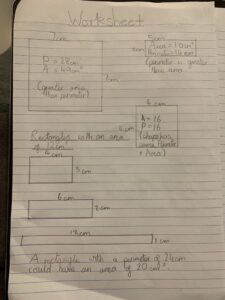 Worksheet
7cm
5cm
Area = 10cm²
Perimeter = 14cm
(perimeter is greater
than area
P = 28cm
A = 49cm²
7cm
(greater area
than perimeter)
4cm
4cm
A = 16
P = 16
(shape has
same perimeter
+ Area)
Rectangles with an area
of 12cm²
4cm
3cm
6cm
2cm
12cm
1cm
A rectangle with a perimeter of 24cm
could have an area of 20cm²